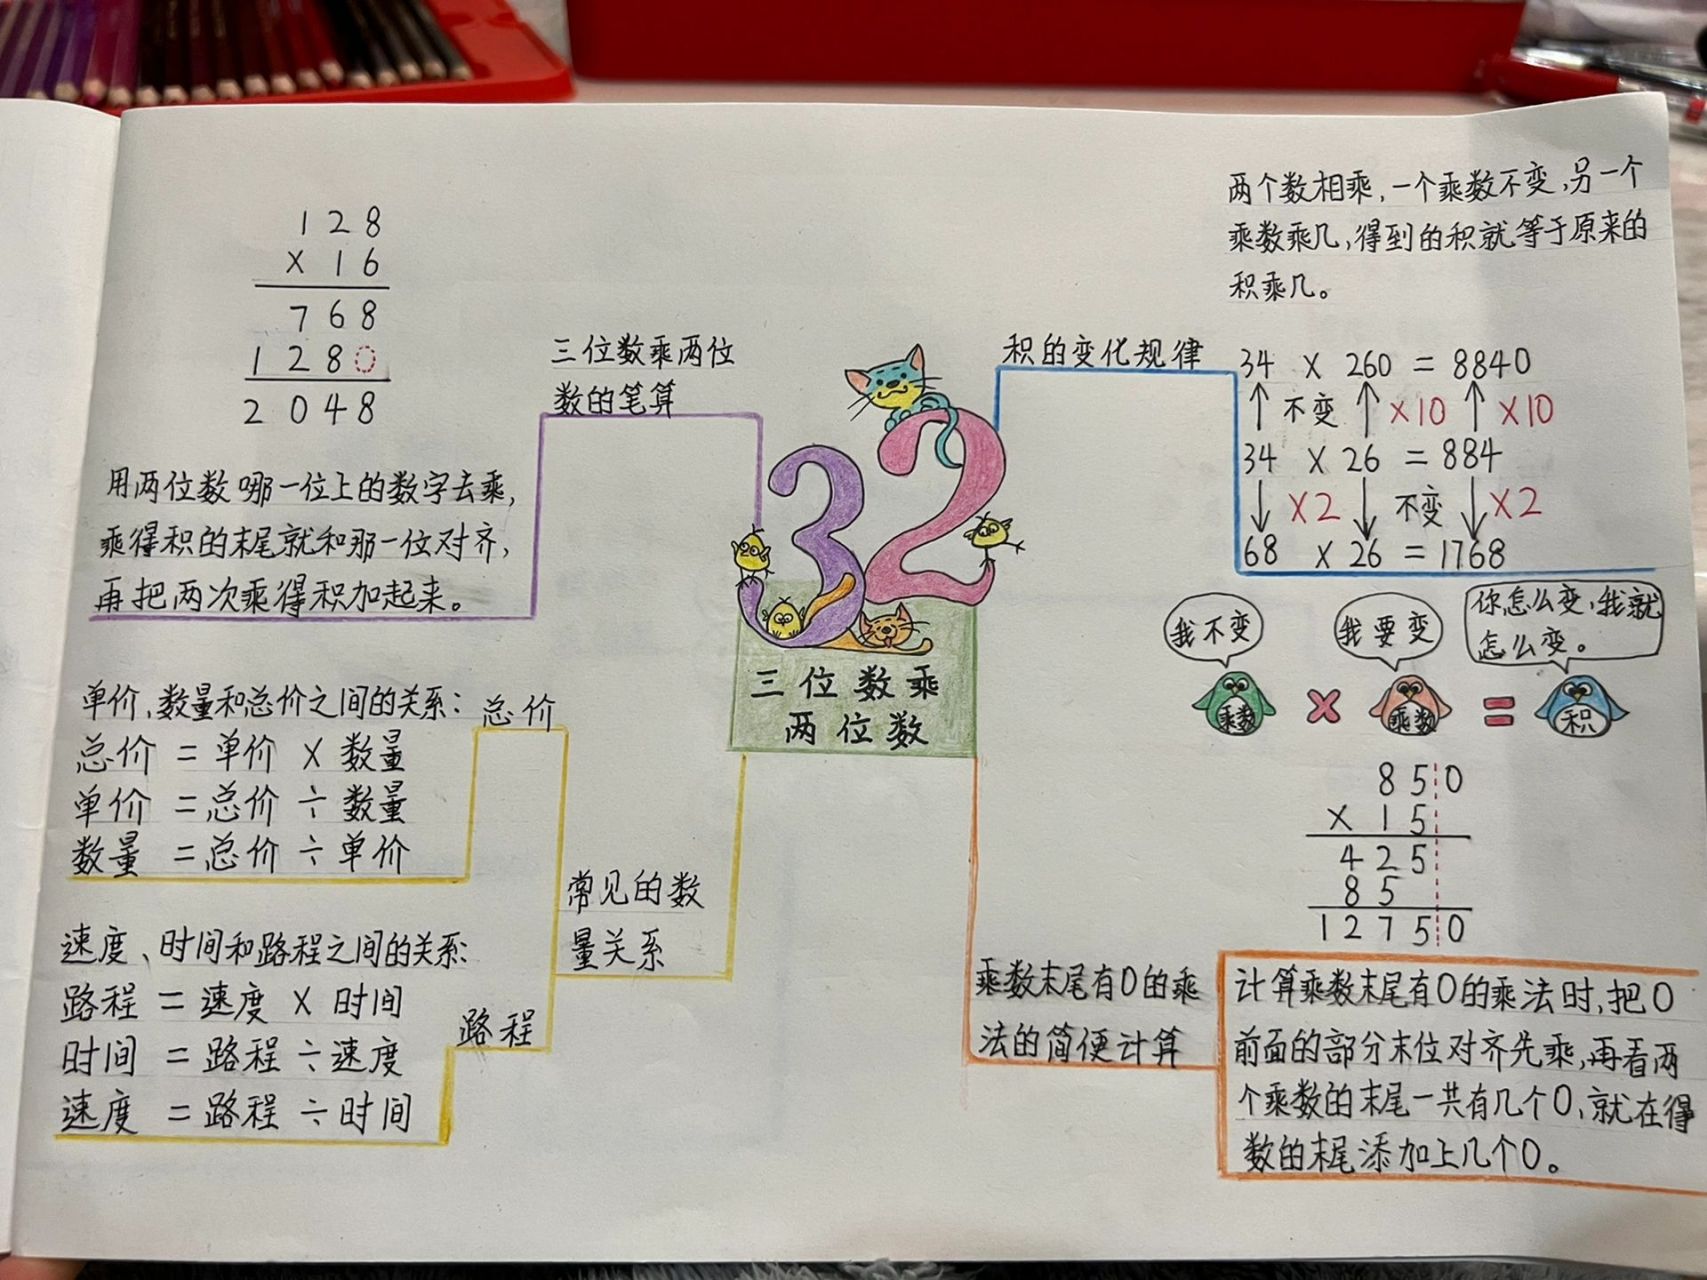 128
×16
768
1280
2048
用两位数哪一位上的数字去乘，
乘得积的末尾就和那一位对齐，
再把两次乘得积加起来。
三位数乘两位
数的笔算
单价、数量和总价之间的关系：
总价=单价×数量
单价=总价÷数量
数量=总价÷单价
总价
速度、时间和路程之间的关系：
路程=速度×时间
时间=路程÷速度
速度=路程÷时间
路程
常见的数
量关系
32
三位数乘
两位数
积的变化规律
两个数相乘，一个乘数不变，另一个
乘数乘几，得到的积就等于原来的
积乘几。
34×260=8840
↑不变↑×10↑×10
34×26=884
↓×2↓不变↓×2
68×26=1768
我不变
我要变
你怎么变，我就
怎么变。
乘数×乘数=积
850
×15
425
85
12750
乘数末尾有0的乘
法的简便计算
计算乘数末尾有0的乘法时，把0
前面的部分末位对齐先乘，再看两
个乘数的末尾一共有几个0，就在得
数的末尾添加上几个0。